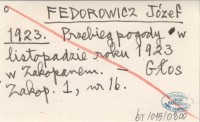 o FEDOROWICZ Józef
1923. Przebieg pogody w
listopadzie roku 1923
w Zakopanem. - Głos
Zakop. 1, nr 16.